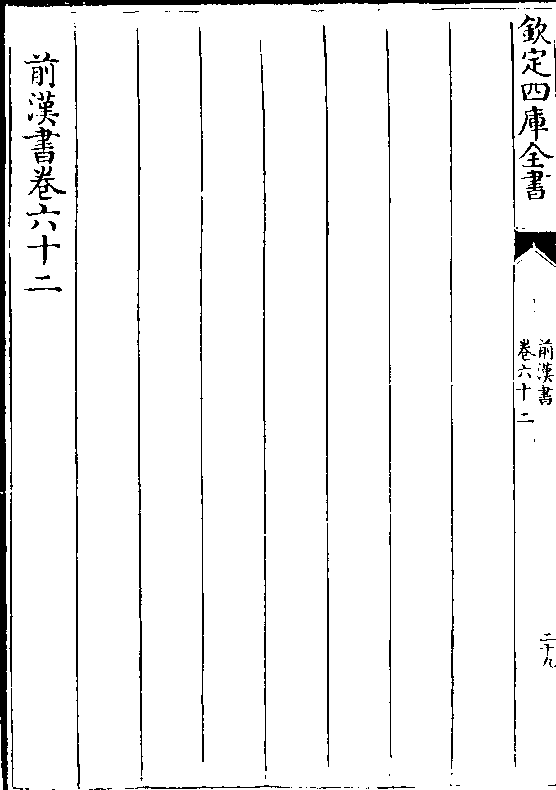 欽定四庫全書
前漢書
卷六十二
二十九
前漢書卷六十二